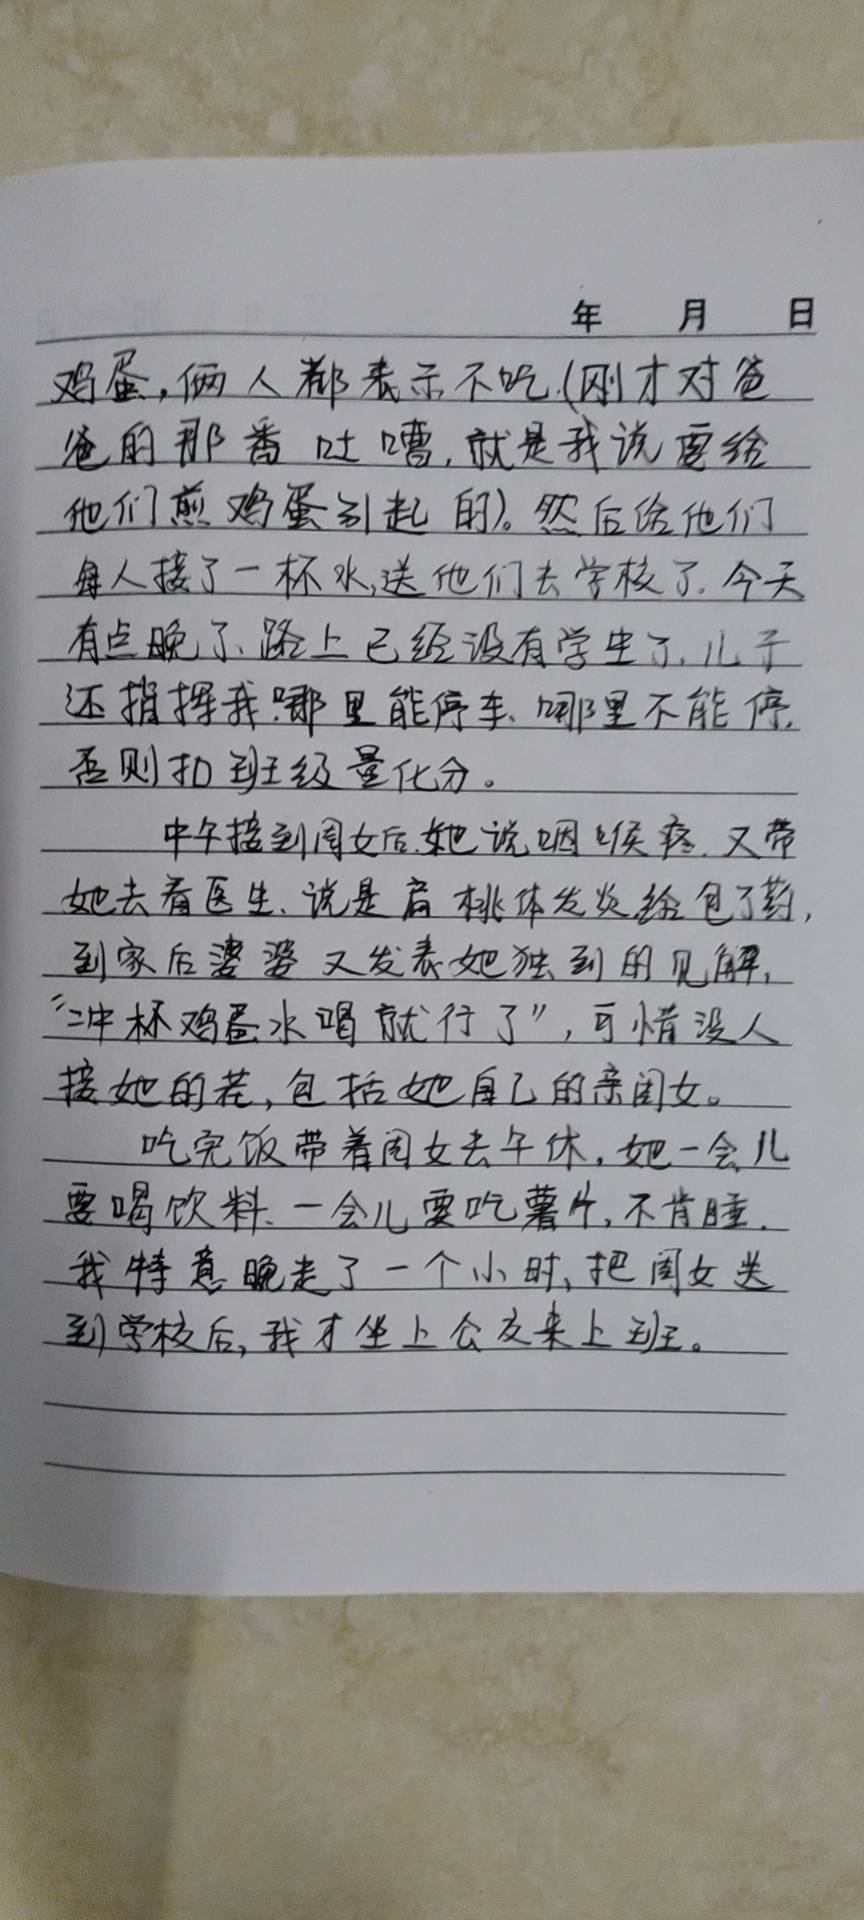 年 月 日
鸡蛋,俩人都表示不吃.(刚才对爸
爸的那番吐嘈,就是我说要给
他们煎鸡蛋引起的)。然后给他们
每人接了一杯水,送他们去学校了.今天
有点晚了、路上已经没有学生了.儿子
还指挥我:哪里能停车、哪里不能停,
否则扣班级量化分。
中午接到闺女后.她说咽喉疼.又带
她去看医生、说是扁桃体发炎给包了药,
到家后婆婆又发表她独到的见解,
“冲杯鸡蛋水喝就行了”,可惜没人
接她的茬,包括她自己的亲闺女。
吃完饭带着闺女去午休,她一会儿
要喝饮料、一会儿要吃薯片,不肯睡.
我特意晚走了一个小时,把闺女送
到学校后,我才坐上公交来上班。